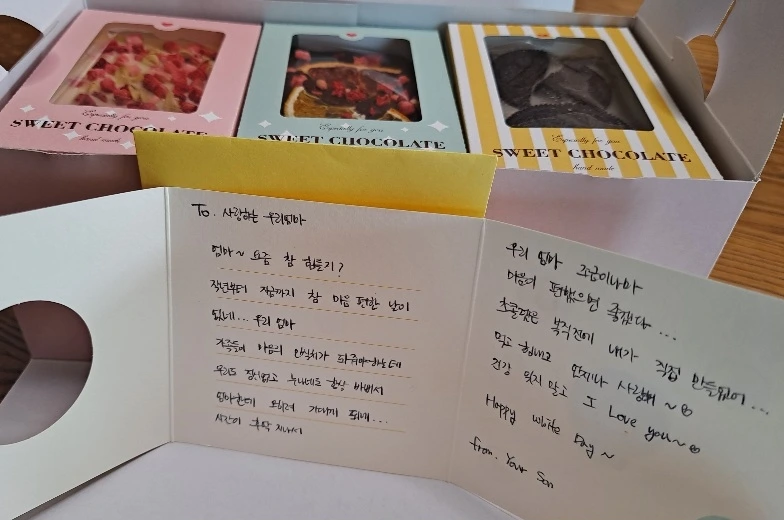 Especially for you
SWEET CHOCOLATE
hand made
Especially for you
SWEET CHOCOLATE
Especially for you
SWEET CHOCOLATE
hand made
To. 사랑하는 우리엄마
엄마~ 요즘 참 힘들지?
작년부터 지금까지 참 마음 편한 날이
없네... 우리 엄마
가족들이 마음의 안식처가 돼줘야하는데
우리도 정신없고 누나네도 항상 바빠서
엄마한테 오히려 기대기만 하네...
시간이 후딱 지나서
우리 엄마 조금이나마
마음이 편했으면 좋겠다...
초콜릿은 복직전에 내가 직접 만들었어...
먹고 힘내고 언제나 사랑해~
건강 잊지 말고 I Love you~
Happy White Day~
from. Your Son